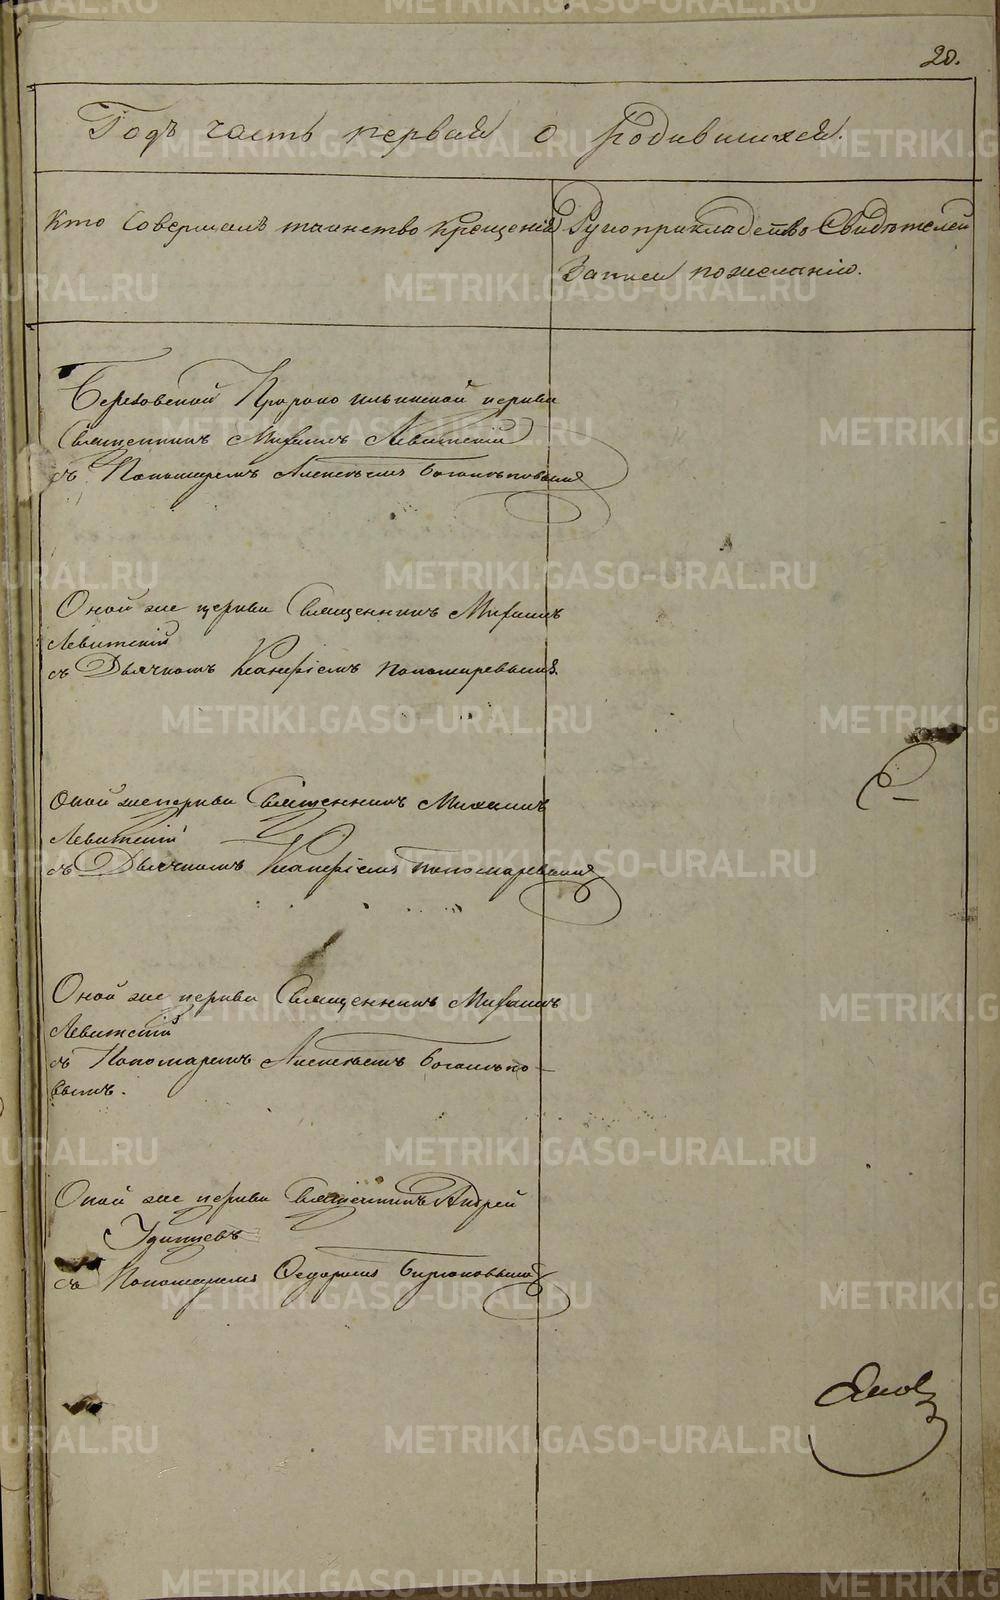 20.
Годъ часть первая о родившихся.
Кто совершалъ таинство крещенія
Рукоприкладство Свидѣтелей
Записи по желанію.
Березовской Пророко Ильинской церкви
Священникъ Михаилъ Левитскій
съ Пономаремъ Алексѣемъ
Оной же церкви Священникъ Михаилъ
Левитскій
съ Дьячкомъ Ксанфіемъ Пономаревымъ.
Оной же церкви Священникъ Михаилъ
Левитскій
съ Дьячкомъ Ксанфіемъ Пономаревымъ
Оной же церкви Священникъ Михаилъ
Левитскій
съ Пономаремъ Алексѣемъ
вымъ.
Оной же церкви Священникъ Андрей
Удинцевъ
съ Пономаремъ Ѳедоромъ Бирюковымъ
METRIKI.GASO-URAL.RU